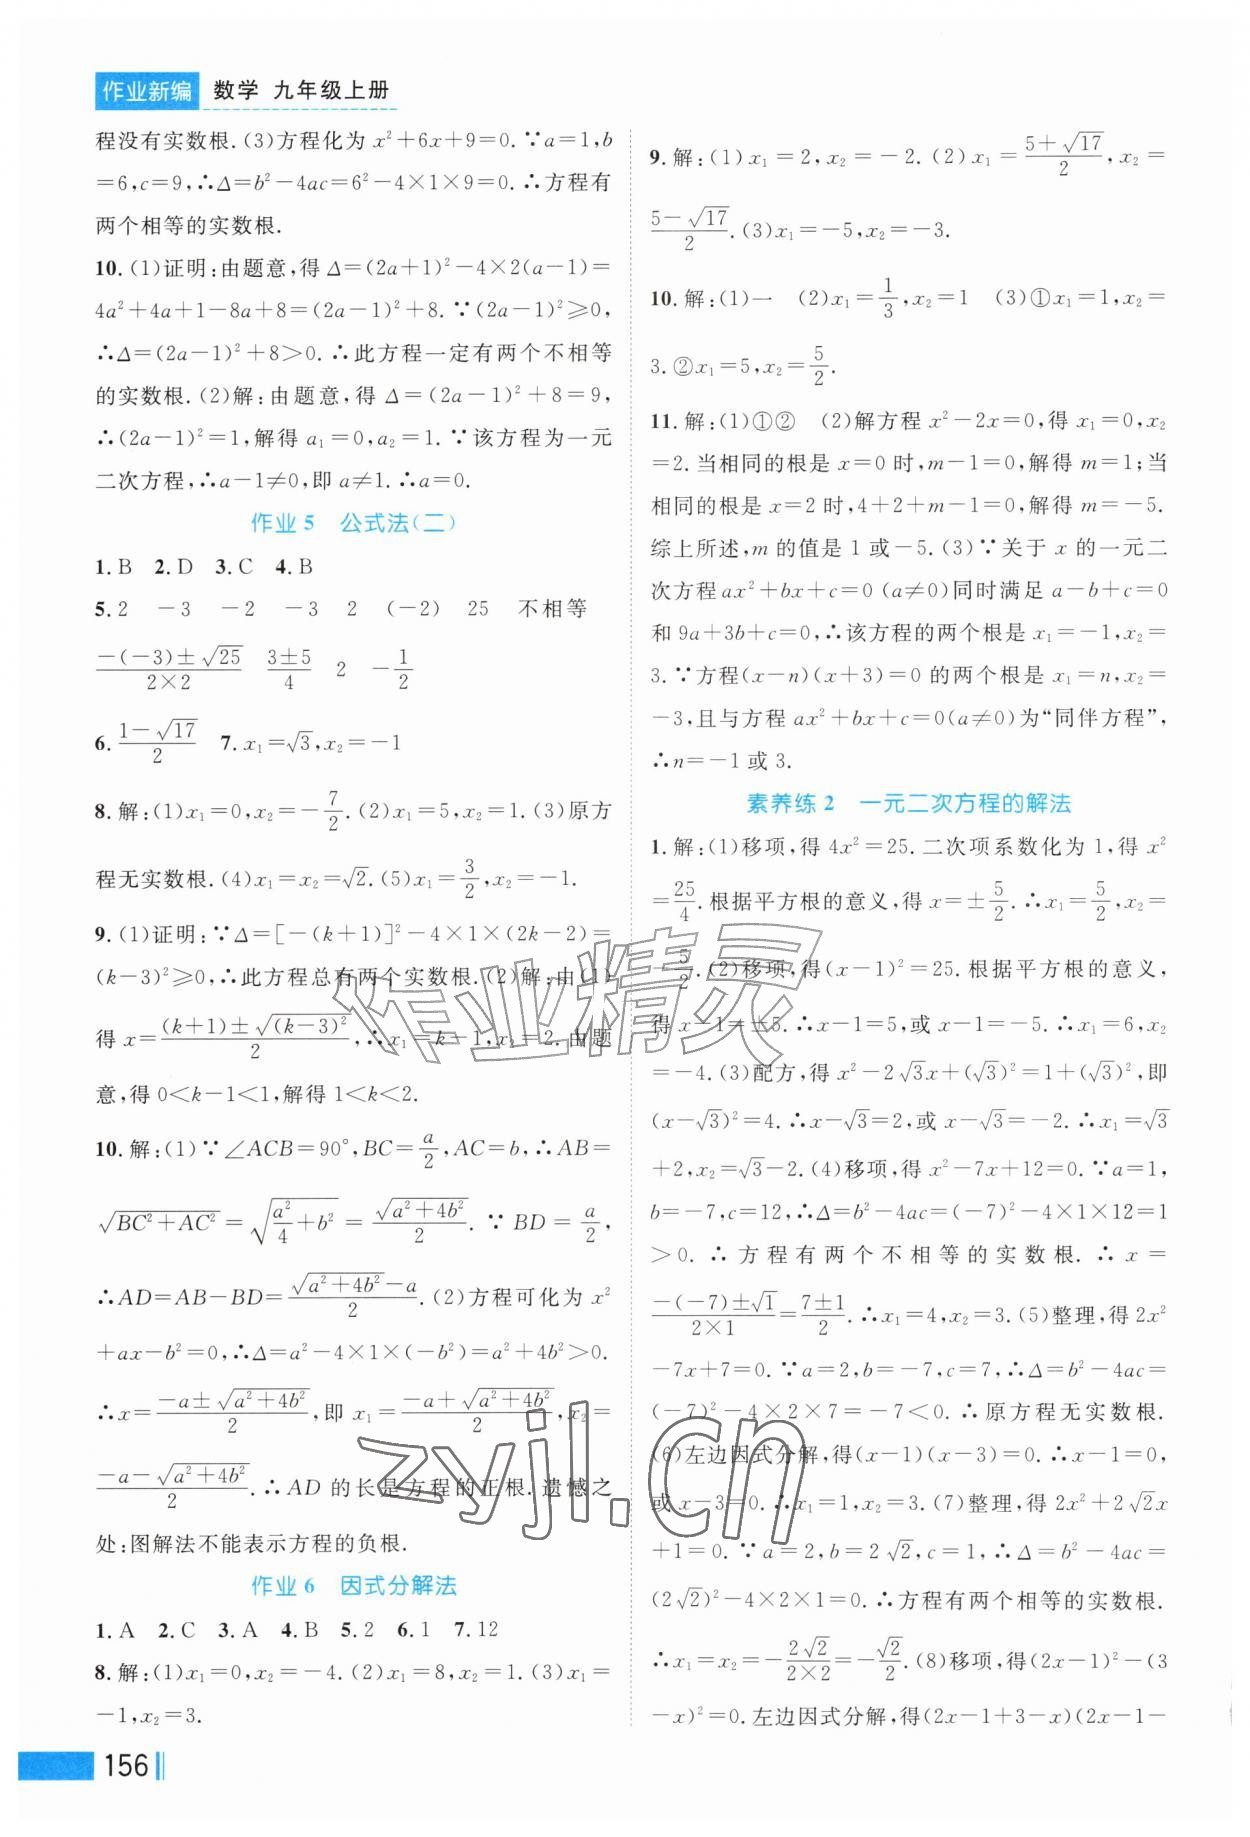 作业新编 数学 九年级上册
程没有实数根.(3)方程化为 x²+6x+9=0.∵a=1,b
=6,c=9,∴Δ=b²-4ac=6²-4×1×9=0.∴方程有
两个相等的实数根.
10.(1)证明:由题意,得 Δ=(2a+1)²-4×2(a-1)=
4a²+4a+1-8a+8=(2a-1)²+8.∵(2a-1)²≥0,
∴Δ=(2a-1)²+8>0.∴此方程一定有两个不相等
的实数根.(2)解:由题意,得 Δ=(2a-1)²+8=9,
∴(2a-1)²=1,解得 a₁=0,a₂=1.∵该方程为一元
二次方程,∴a-1≠0,即 a≠1.∴a=0.
作业 5 公式法(二)
1.B 2.D 3.C 4.B
5.2 -3 -2 -3 2 (-2) 25 不相等
\frac{-(-3)±√25}{2×2} \frac{3±5}{4} 2 -\frac{1}{2}
6.\frac{1-√17}{2} 7.x₁=√3,x₂=-1
8.解:(1)x₁=0,x₂=-\frac{7}{2}.(2)x₁=5,x₂=1.(3)原方
程无实数根.(4)x₁=x₂=√2.(5)x₁=\frac{3}{2},x₂=-1.
9.(1)证明:∵Δ=[-(k+1)]²-4×1×(2k-2)=
(k-3)²≥0,∴此方程总有两个实数根.(2)解:由(1)
得 x=\frac{(k+1)±√(k-3)²}{2},∴x₁=k-1,x₂=2.由题
意,得 0<k-1<1,解得 1<k<2.
10.解:(1)∵∠ACB=90°,BC=\frac{a}{2},AC=b,∴AB=
√(BC²+AC²)=√(\frac{a²}{4}+b²)=\frac{√(a²+4b²)}{2}.∵BD=\frac{a}{2},
∴AD=AB-BD=\frac{√(a²+4b²)-a}{2}.(2)方程可化为 x²
+ax-b²=0,∴Δ=a²-4×1×(-b²)=a²+4b²>0.
∴x=\frac{-a±√(a²+4b²)}{2},即 x₁=\frac{-a+√(a²+4b²)}{2},x₂=
\frac{-a-√(a²+4b²)}{2}.∴AD 的长是方程的正根.遗憾之
处:图解法不能表示方程的负根.
作业 6 因式分解法
1.A 2.C 3.A 4.B 5.2 6.1 7.12
8.解:(1)x₁=0,x₂=-4.(2)x₁=8,x₂=1.(3)x₁=
-1,x₂=3.
9.解:(1)x₁=2,x₂=-2.(2)x₁=\frac{5+√17}{2},x₂=
\frac{5-√17}{2}.(3)x₁=-5,x₂=-3.
10.解:(1)一 (2)x₁=\frac{1}{3},x₂=1 (3)①x₁=1,x₂=
3.②x₁=5,x₂=\frac{5}{2}.
11.解:(1)①② (2)解方程 x²-2x=0,得 x₁=0,x₂
=2.当相同的根是 x=0 时,m-1=0,解得 m=1;当
相同的根是 x=2 时,4+2+m-1=0,解得 m=-5.
综上所述,m 的值是 1 或-5.(3)∵关于 x 的一元二
次方程 ax²+bx+c=0(a≠0)同时满足 a-b+c=0
和 9a+3b+c=0,∴该方程的两个根是 x₁=-1,x₂=
3.∵方程(x-n)(x+3)=0 的两个根是 x₁=n,x₂=
-3,且与方程 ax²+bx+c=0(a≠0)为“同伴方程”,
∴n=-1 或 3.
素养练 2 一元二次方程的解法
1.解:(1)移项,得 4x²=25.二次项系数化为 1,得 x²
=\frac{25}{4}.根据平方根的意义,得 x=±\frac{5}{2}.∴x₁=\frac{5}{2},x₂=
-\frac{5}{2}.(2)移项,得(x-1)²=25.根据平方根的意义,
得 x-1=±5.∴x-1=5,或 x-1=-5.∴x₁=6,x₂
=-4.(3)配方,得 x²-2√3x+(√3)²=1+(√3)²,即
(x-√3)²=4.∴x-√3=2,或 x-√3=-2.∴x₁=√3
+2,x₂=√3-2.(4)移项,得 x²-7x+12=0.∵a=1,
b=-7,c=12,∴Δ=b²-4ac=(-7)²-4×1×12=1
>0.∴方程有两个不相等的实数根.∴x=
\frac{-(-7)±√1}{2×1}=\frac{7±1}{2}.∴x₁=4,x₂=3.(5)整理,得 2x²
-7x+7=0.∵a=2,b=-7,c=7,∴Δ=b²-4ac=
(-7)²-4×2×7=-7<0.∴原方程无实数根.
(6)左边因式分解,得(x-1)(x-3)=0.∴x-1=0,
或 x-3=0.∴x₁=1,x₂=3.(7)整理,得 2x²+2√2x
+1=0.∵a=2,b=2√2,c=1,∴Δ=b²-4ac=
(2√2)²-4×2×1=0.∴方程有两个相等的实数根.
∴x₁=x₂=-\frac{2√2}{2×2}=-\frac{√2}{2}.(8)移项,得(2x-1)²-(3
-x)²=0.左边因式分解,得(2x-1+3-x)(2x-1-
156
作业精灵
zyjl.cn